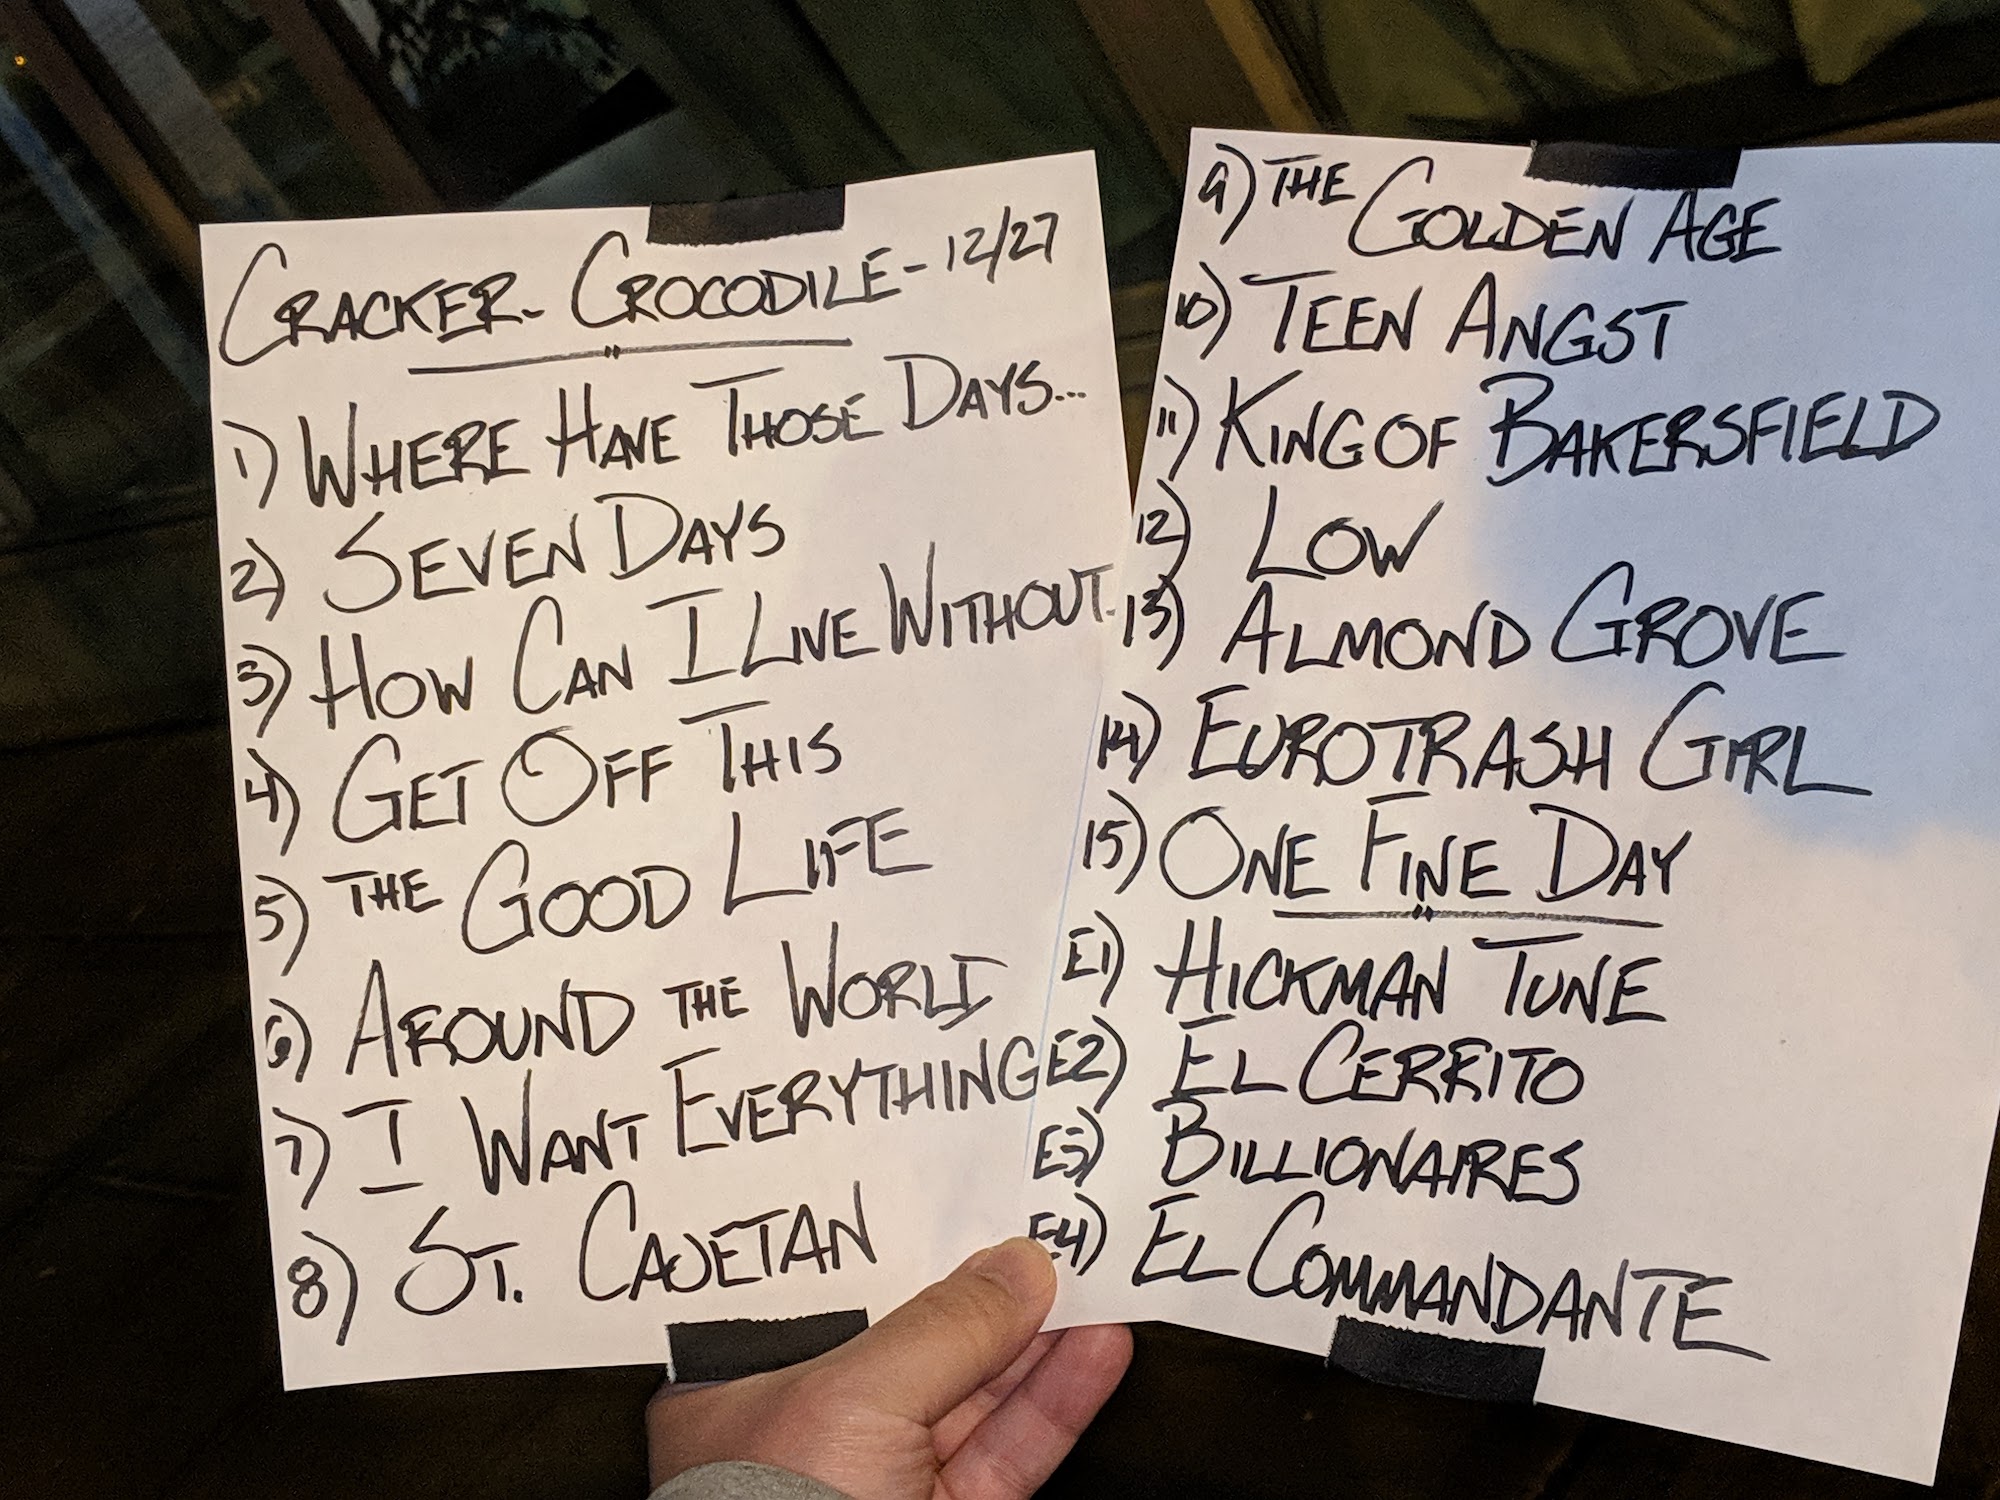 CRACKER - CROCODILE - 12/27
1) WHERE HAVE THOSE DAYS...
2) SEVEN DAYS
3) HOW CAN I LIVE WITHOUT..
4) GET OFF THIS
5) THE GOOD LIFE
6) AROUND THE WORLD
7) I WANT EVERYTHING
8) ST. CAJETAN
9) THE GOLDEN AGE
10) TEEN ANGST
11) KING OF BAKERSFIELD
12) LOW
13) ALMOND GROVE
14) EUROTRASH GIRL
15) ONE FINE DAY
E1) HICKMAN TUNE
E2) EL CERRITO
E3) BILLIONAIRES
E4) EL COMMANDANTE